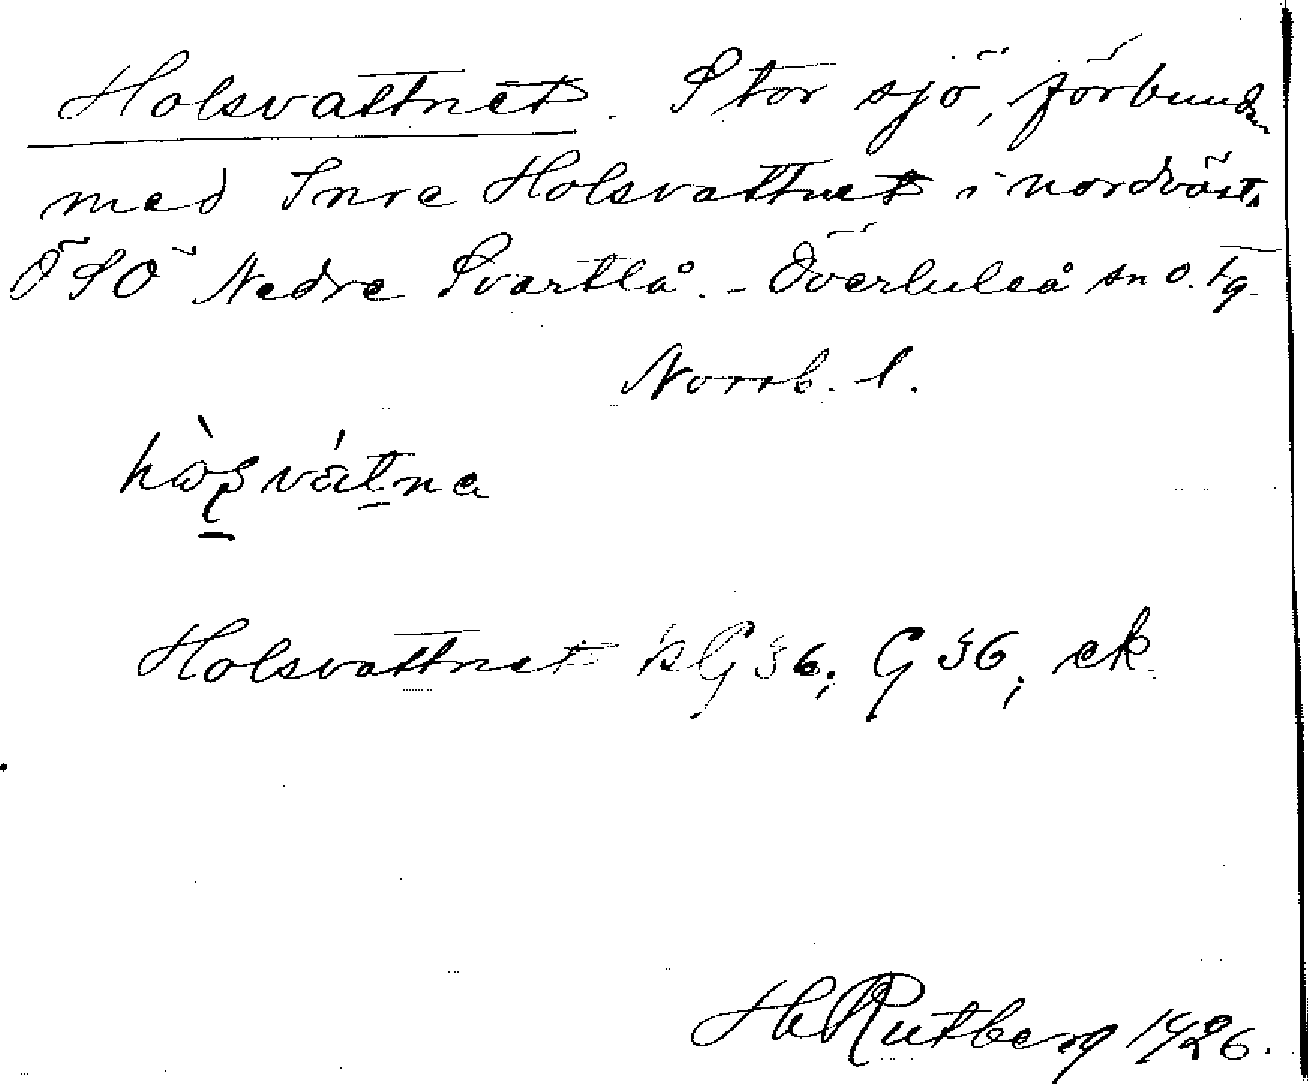 Holsvattnet. Stor sjö, förbunden
med Inre Holsvattnet i nordväst.
ÖSÖ Nedre Svartlå. - Överluleå sn o. tg
Norrb. l.
Holsvattnet kG 36; G 36; ek
H Rutberg 1926.